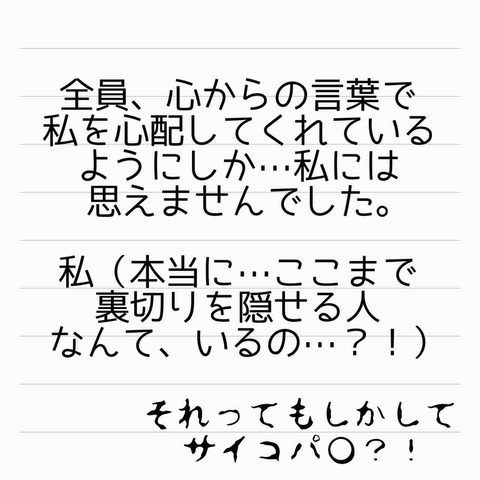 全員、心からの言葉で
私を心配してくれている
ようにしか…私には
思えませんでした。
私（本当に…ここまで
裏切りを隠せる人
なんて、いるの…？！）
それってもしかして
サイコパ〇？！